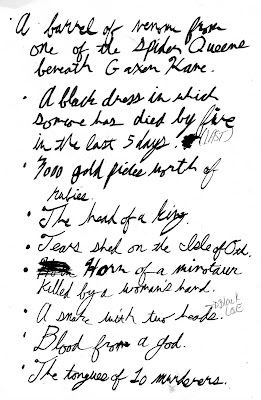 A barrel of venom from
one of the Spider Queens
beneath Gaxen Kane.
· A black dress in which
someone has died by fire
in the last 5 days.
· 7000 gold pieces worth of
rubies.
· The head of a king.
· Tears shed on the Isle of Ord.
· Horn of a minotaur
killed by a woman's hand.
· A snake with two heads.
· Blood from a god.
· The tongues of 10 murderers.